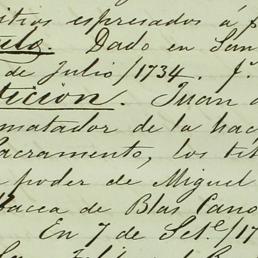 itios espresados á p
Dado en San
de Julio/1734. f.
tición. Juan d
matador de la hac
Sacramento, los tit
poder de Miguel
bacea de Blas Cano
En 7 de Set.e/17